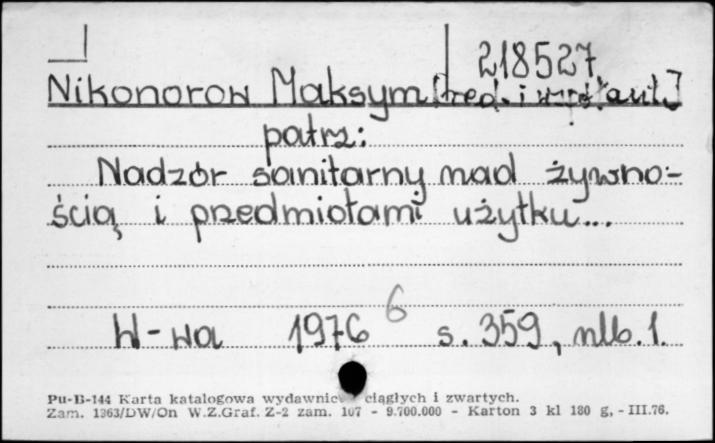 218527
Nikonorow Maksym [red. i współaut.]
patrz:
Nadzór sanitarny nad żywno-
ścią i przedmiotami użytku...
6
W-wa 1976 s. 359, nlb. 1.
Pu-B-144 Karta katalogowa wydawnic ciągłych i zwartych.
Zam. 1363/DW/On W.Z.Graf. Z-2 zam. 107 - 9.700.000 - Karton 3 kl 180 g, - III.76.